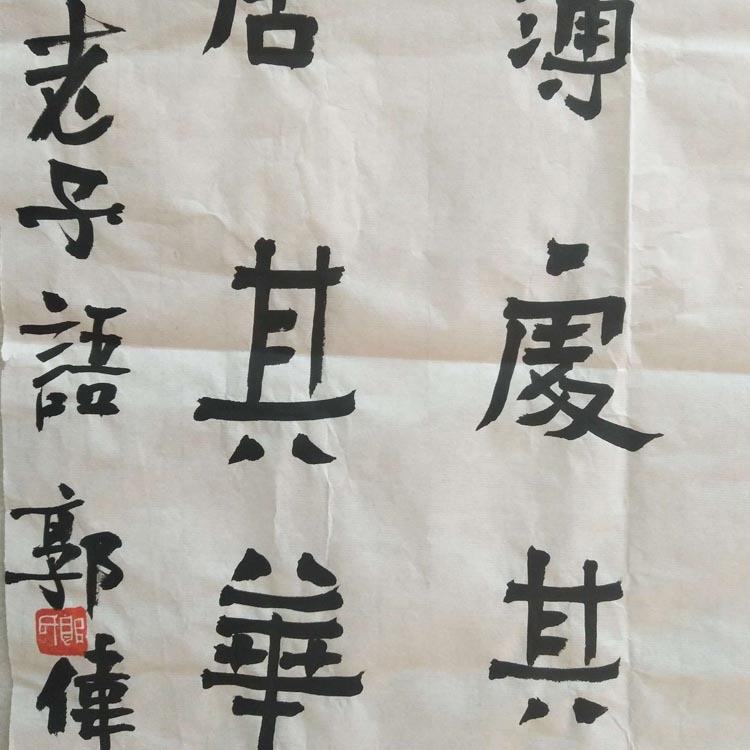 薄處其
居其華
老子語 郭偉